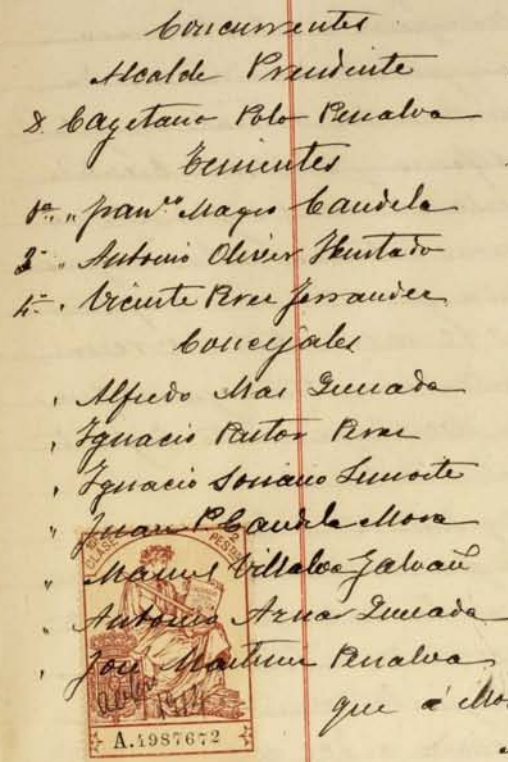 Concurrentes
Alcalde Presidente
D. Cayetano Polo Penalva
Tenientes
1º " Franco Magro Candela
2º " Antonio Oliver Hurtado
4º " Vicente Perez Ferrandez
Concejales
" Alfredo Mas Quesada
" Ignacio Pastor Perez
" Ignacio Soriano
" Juan Bª Candela Mora
" Manuel Villalva Galvañ
" Antonio Aznar Quesada
" José Martinez Penalva
que á
CLASE
PESETAS
1914
A.4987672